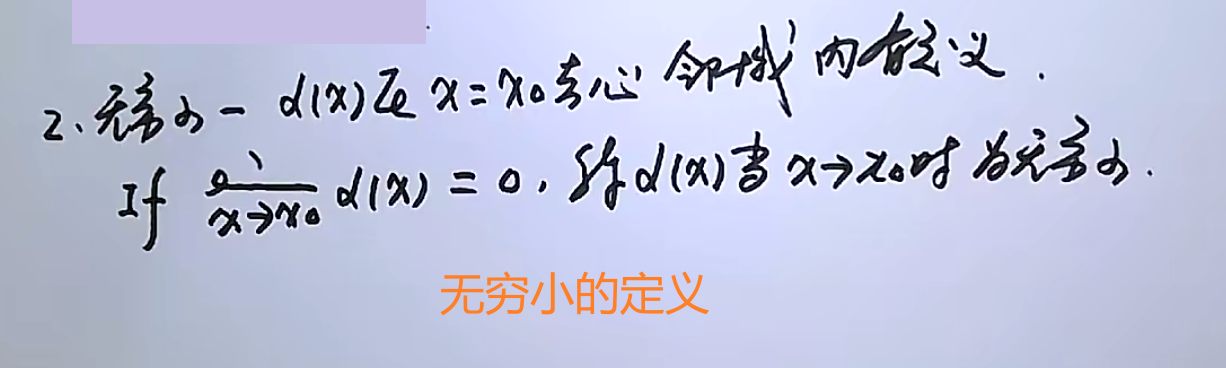 2、无穷小 - α(x)在 x=x₀去心邻域内有定义.
If lim x→x₀ α(x) = 0, 称α(x)当 x→x₀时为无穷小.
无穷小的定义